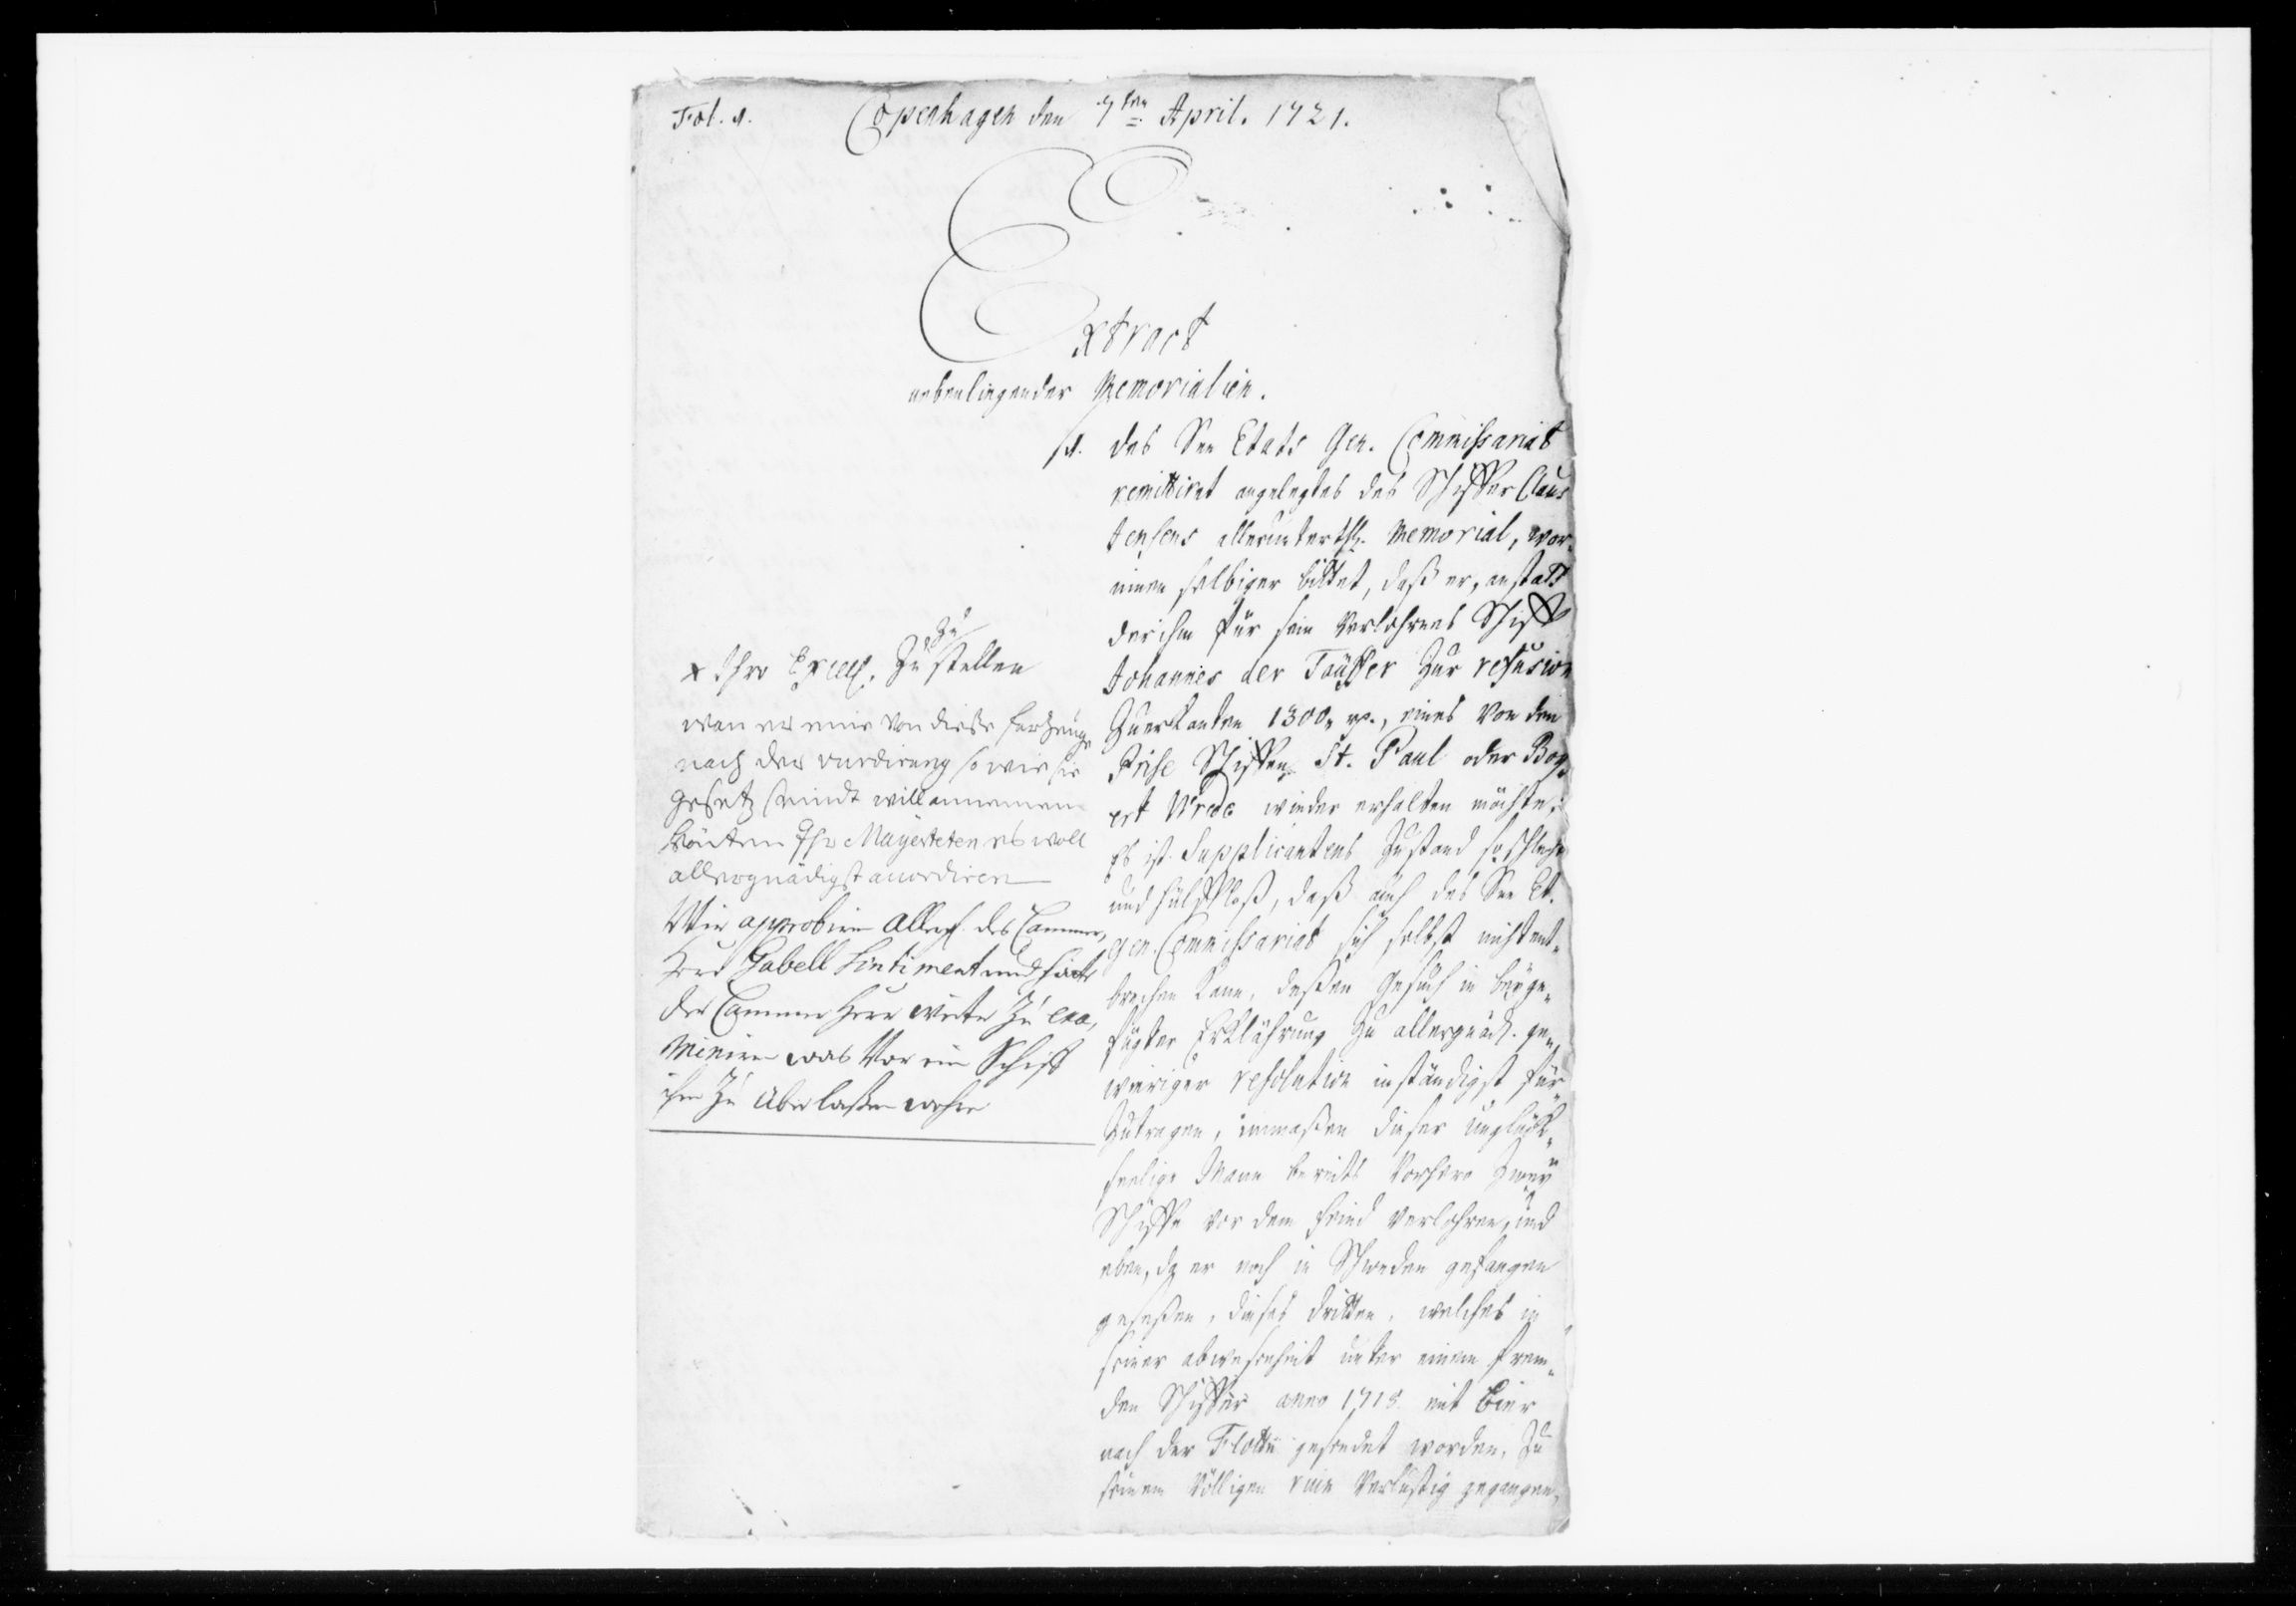 Fol. 1.
Copenhagen den 7ten April. 1721.
Extract
nebenliegender Memorialien.
1. Das See Etats Gen. Commissariat
remittiret angelegtes des Schiffer Claus
Jensens alleruntertgl. Memorial, wor¬
innen selbiger bittet, daß er, anstatt
der ihm für sein verlohrnes Schiff
Johannes der Täuffer zur refusion
zuerkanten 1300 rp., eines von den
Prise Schiffen St. Paul oder Bog¬
ert Wrede wieder erhalten möchte.
Es ist Supplicantens Zustand so schlecht
und hülffloß, daß auch das See Et.
Gen. Commissariat sich selbst nicht ent¬
brechen kann, deßen Gesuch in beyge¬
fügter Erklährung zu allergnäd. ge¬
wieriger resolution inständigst für¬
zutragen, immaßen dieser unglück¬
seelige Mann bereits vorhero zwey
Schiffe vor dem Feind verlohren, und
eben, da er noch in Schweden gefangen
geseßen, dieses dritten, welches in
seiner abwesenheit unter einem frem¬
den Schiffer anno 1715 mit Bier
nach der Flotte gesendet worden, zu
seinem völligen ruin verlustig gegangen,
x Ihro Excell. zu zustellen
wan er eine von diese farzeuge
nach der vurdirung so wie sie
gesetz seindt will annemen
könten Ihr Mayesteten es woll
allergnädigst accordiren
Wir approbiren allergn. des Cammer¬
Herr Gabell Sentiment und hätte
der Cammer Herr weiter zu exa¬
miniren was vor ein Schiff
ihm zu überlaßen wehre